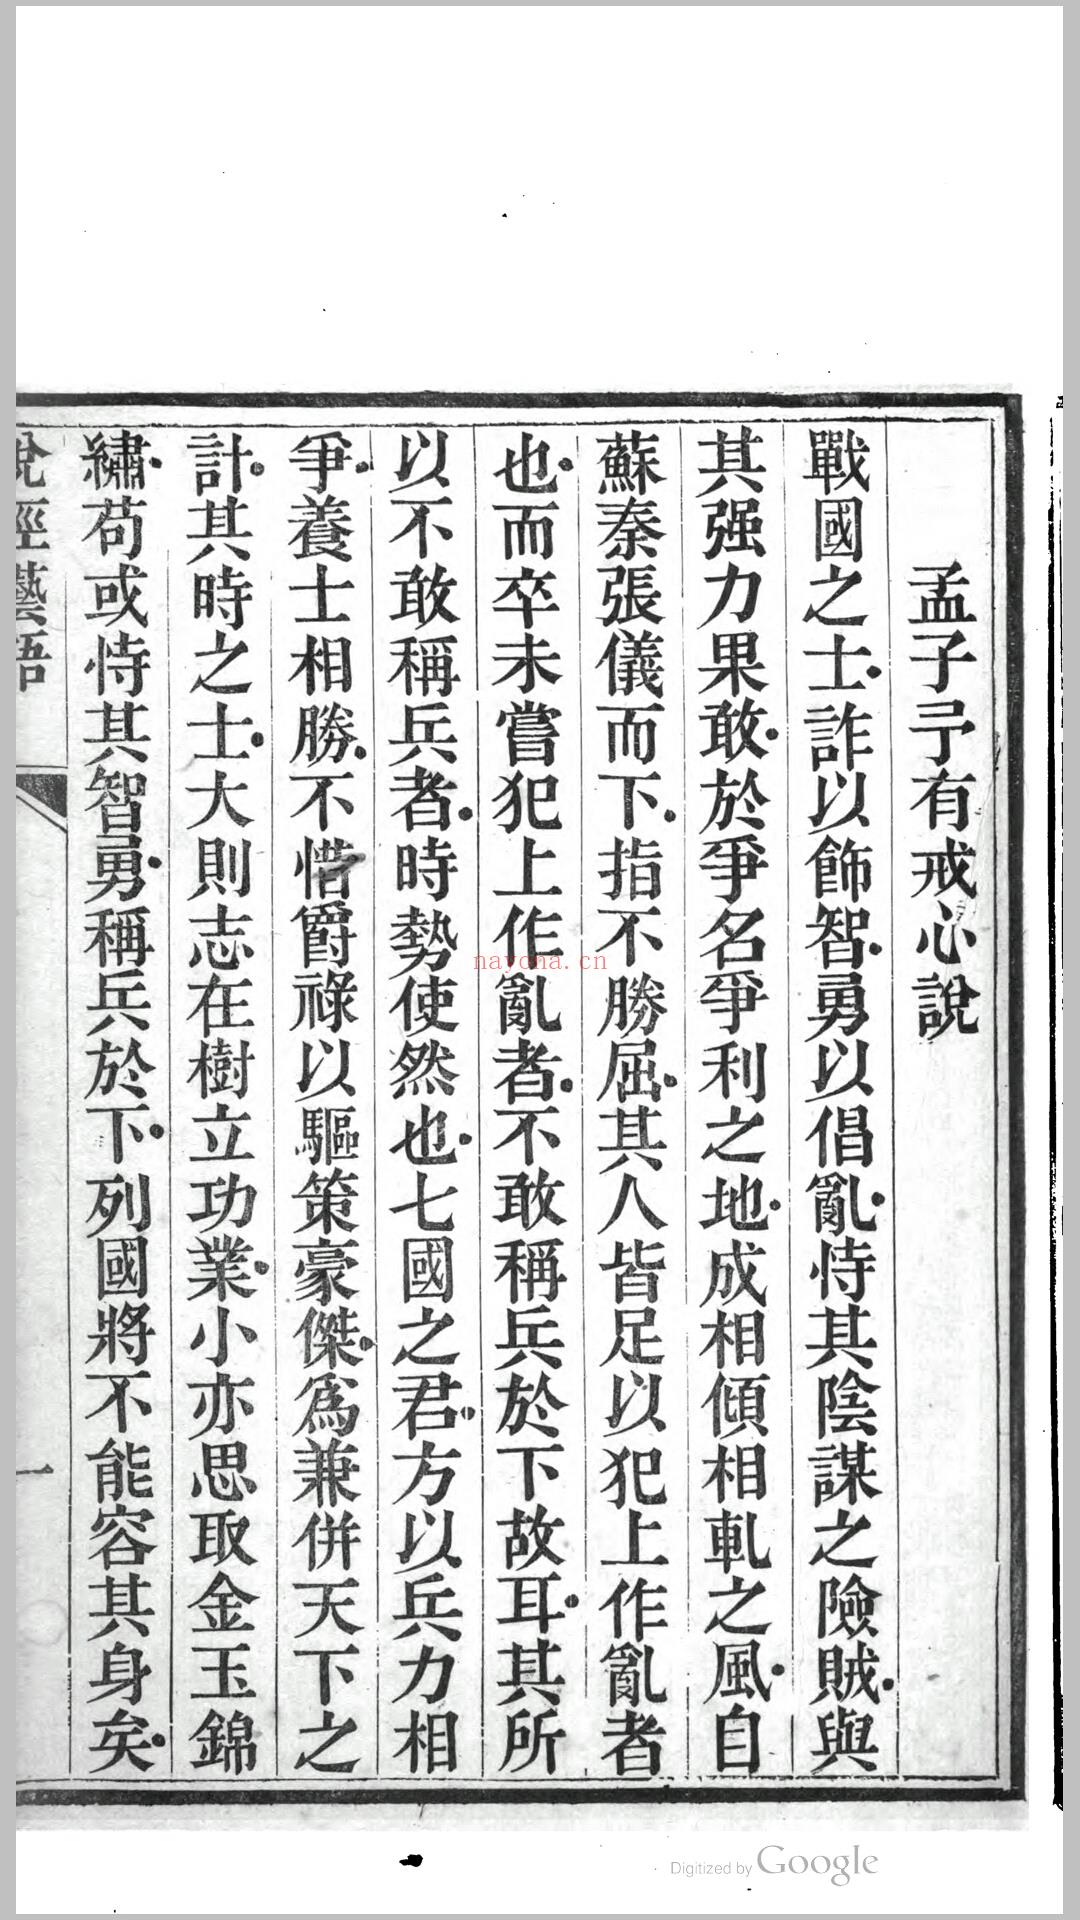 孟子予有戒心說
戰國之士詐以飾智勇以倡亂恃其陰謀之險賊與
其强力果敢於爭名爭利之地成相傾相軋之風自
蘇秦張儀而下指不勝屈其人皆足以犯上作亂者
也而卒未嘗犯上作亂者不敢稱兵於下故耳其所
以不敢稱兵者時勢使然也七國之君方以兵力相
爭養士相勝不惜爵祿以驅策豪傑爲兼併天下之
計其時之士大則志在樹立功業小亦思取金玉錦
繡苟或恃其智勇稱兵於下列國將不能容其身矣
說經藝語
一
nayona.cn
Digitized by Google